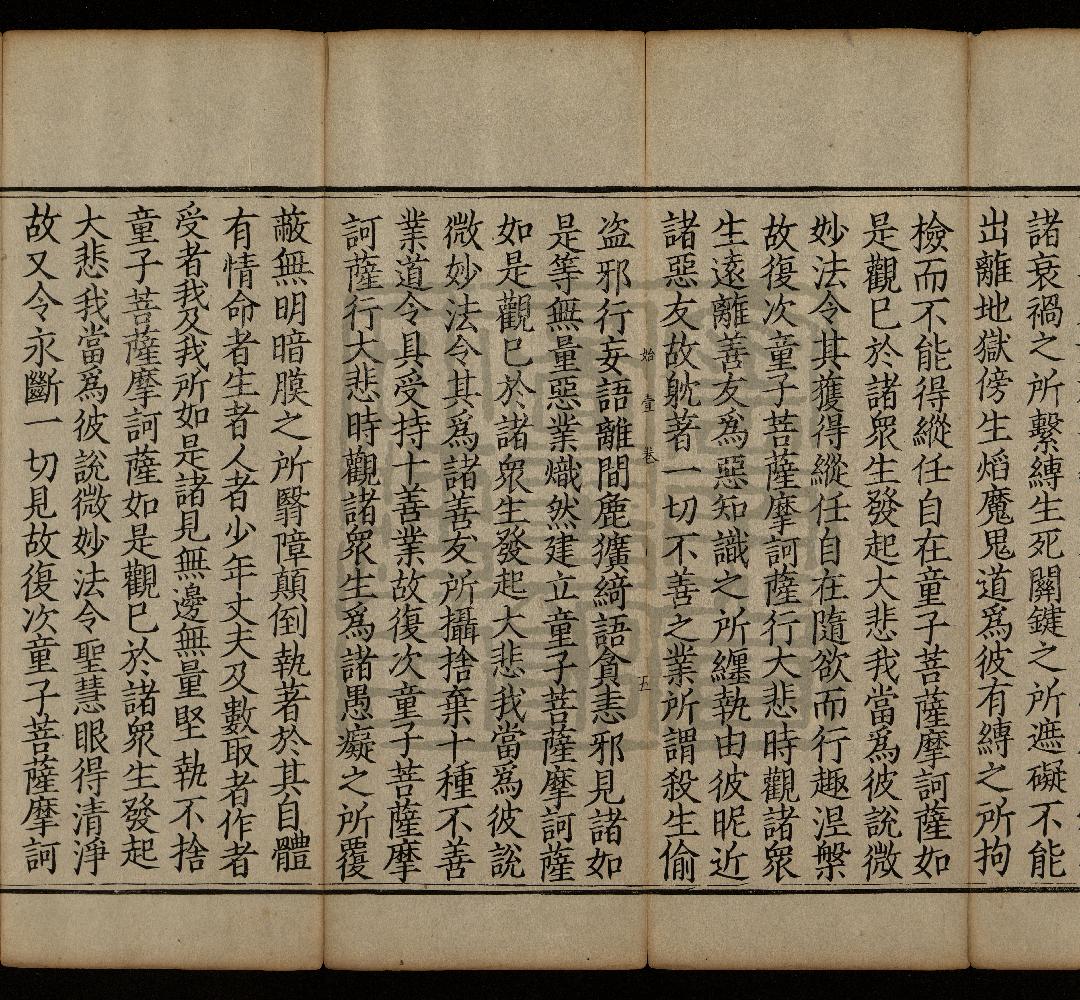 諸衰禍之所繫縛生死關鍵之所遮礙不能
出離地獄傍生焰魔鬼道為彼有縛之所拘
檢而不能得縱任自在童子菩薩摩訶薩如
是觀巳於諸衆生發起大悲我當為彼說微
妙法令其獲得縱任自在隨欲而行趣涅槃
故復次童子菩薩摩訶薩行大悲時觀諸衆
生遠離善友為惡知識之所纏執由彼昵近
諸惡友故躭著一切不善之業所謂殺生偷
始 壹 卷 五
盗邪行妄語離間麁獷綺語貪恚邪見諸如
是等無量惡業熾然建立童子菩薩摩訶薩
如是觀巳於諸衆生發起大悲我當為彼說
微妙法令其為諸善友所攝捨棄十種不善
業道令具受持十善業故復次童子菩薩摩
訶薩行大悲時觀諸衆生為諸愚癡之所覆
蔽無明暗膜之所翳障顛倒執著於其自體
有情命者生者人者少年丈夫及數取者作者
受者我及我所如是諸見無邊無量堅執不捨
童子菩薩摩訶薩如是觀巳於諸衆生發起
大悲我當為彼說微妙法令聖慧眼得清淨
故又令永斷一切見故復次童子菩薩摩訶